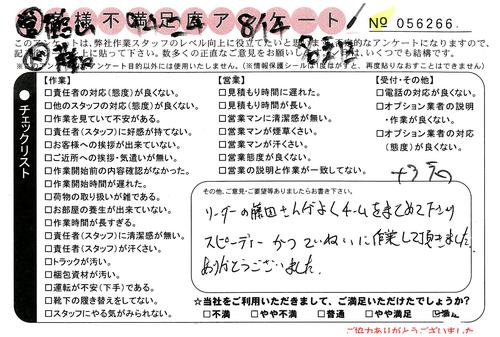 様不満足度アンケート!
№ 056266
このアンケートは、弊社作業スタッフのレベル向上に役立てたいと思
記
※このアンケート目的以外には使用いたしません。(※情報保護シールは1度はがすと、再度貼りなおすことはできません)
チェックリスト
【作業】
□責任者の対応(態度)が良くない。
□他のスタッフの対応(態度)が良くない。
□作業を見ていて不安がある。
□責任者(スタッフ)に好感が持てない。
□お客様への挨拶が出来ていない。
□ご近所への挨拶・気遣いが無い。
□作業開始前の内容確認がなかった。
□作業開始時間が遅れた。
□荷物の取り扱いが雑である。
□お部屋の養生が出来ていない。
□作業時間が長すぎる。
□責任者(スタッフ)に清潔感が無い。
□責任者(スタッフ)が汗くさい。
□トラックが汚い。
□梱包資材が汚い。
□運転が不安(下手)である。
□靴下の履き替えをしてない。
□スタッフにやる気がみられない。
【営業】
□見積もり時間に遅れた。
□見積もり時間が長い。
□営業マンに清潔感が無い。
□営業マンが煙草くさい。
□営業マンが汗くさい。
□営業態度が良くない。
□営業の説明と作業が一致してない。
【受付・その他】
□電話の対応が良くない。
□オプション業者の説明
・作業が良くない。
□オプション業者の対応
(態度)が良くない。
その他、ご意見・ご要望等ありましたらお書き下さい。
リーダーの藤田さんがよくチームをまとめて下さり
スピーディーかつていねいに作業して頂きました。
ありがとうございました。
☆当社をご利用いただきまして、ご満足いただけたでしょうか?
□不満 □やや不満 □普通 □やや満足
ご協力ありがとうございました